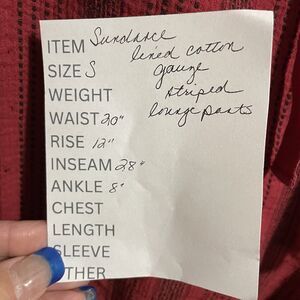 ITEM Sundance
lined cotton
SIZE S gauze
WEIGHT striped
WAIST 20" lounge pants
RISE 12"
INSEAM 28"
ANKLE 8"
CHEST
LENGTH
SLEEVE
OTHER